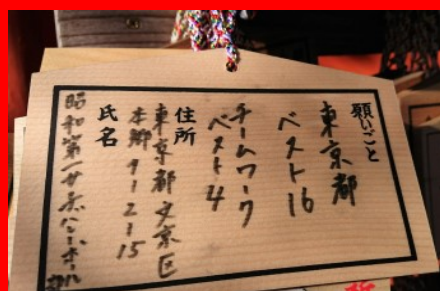 願いごと
東京都
ベスト16
チームワーク
ベスト4
住所
東京都文京区
本郷1-2-15
氏名
昭和第一サボハレーボール
部